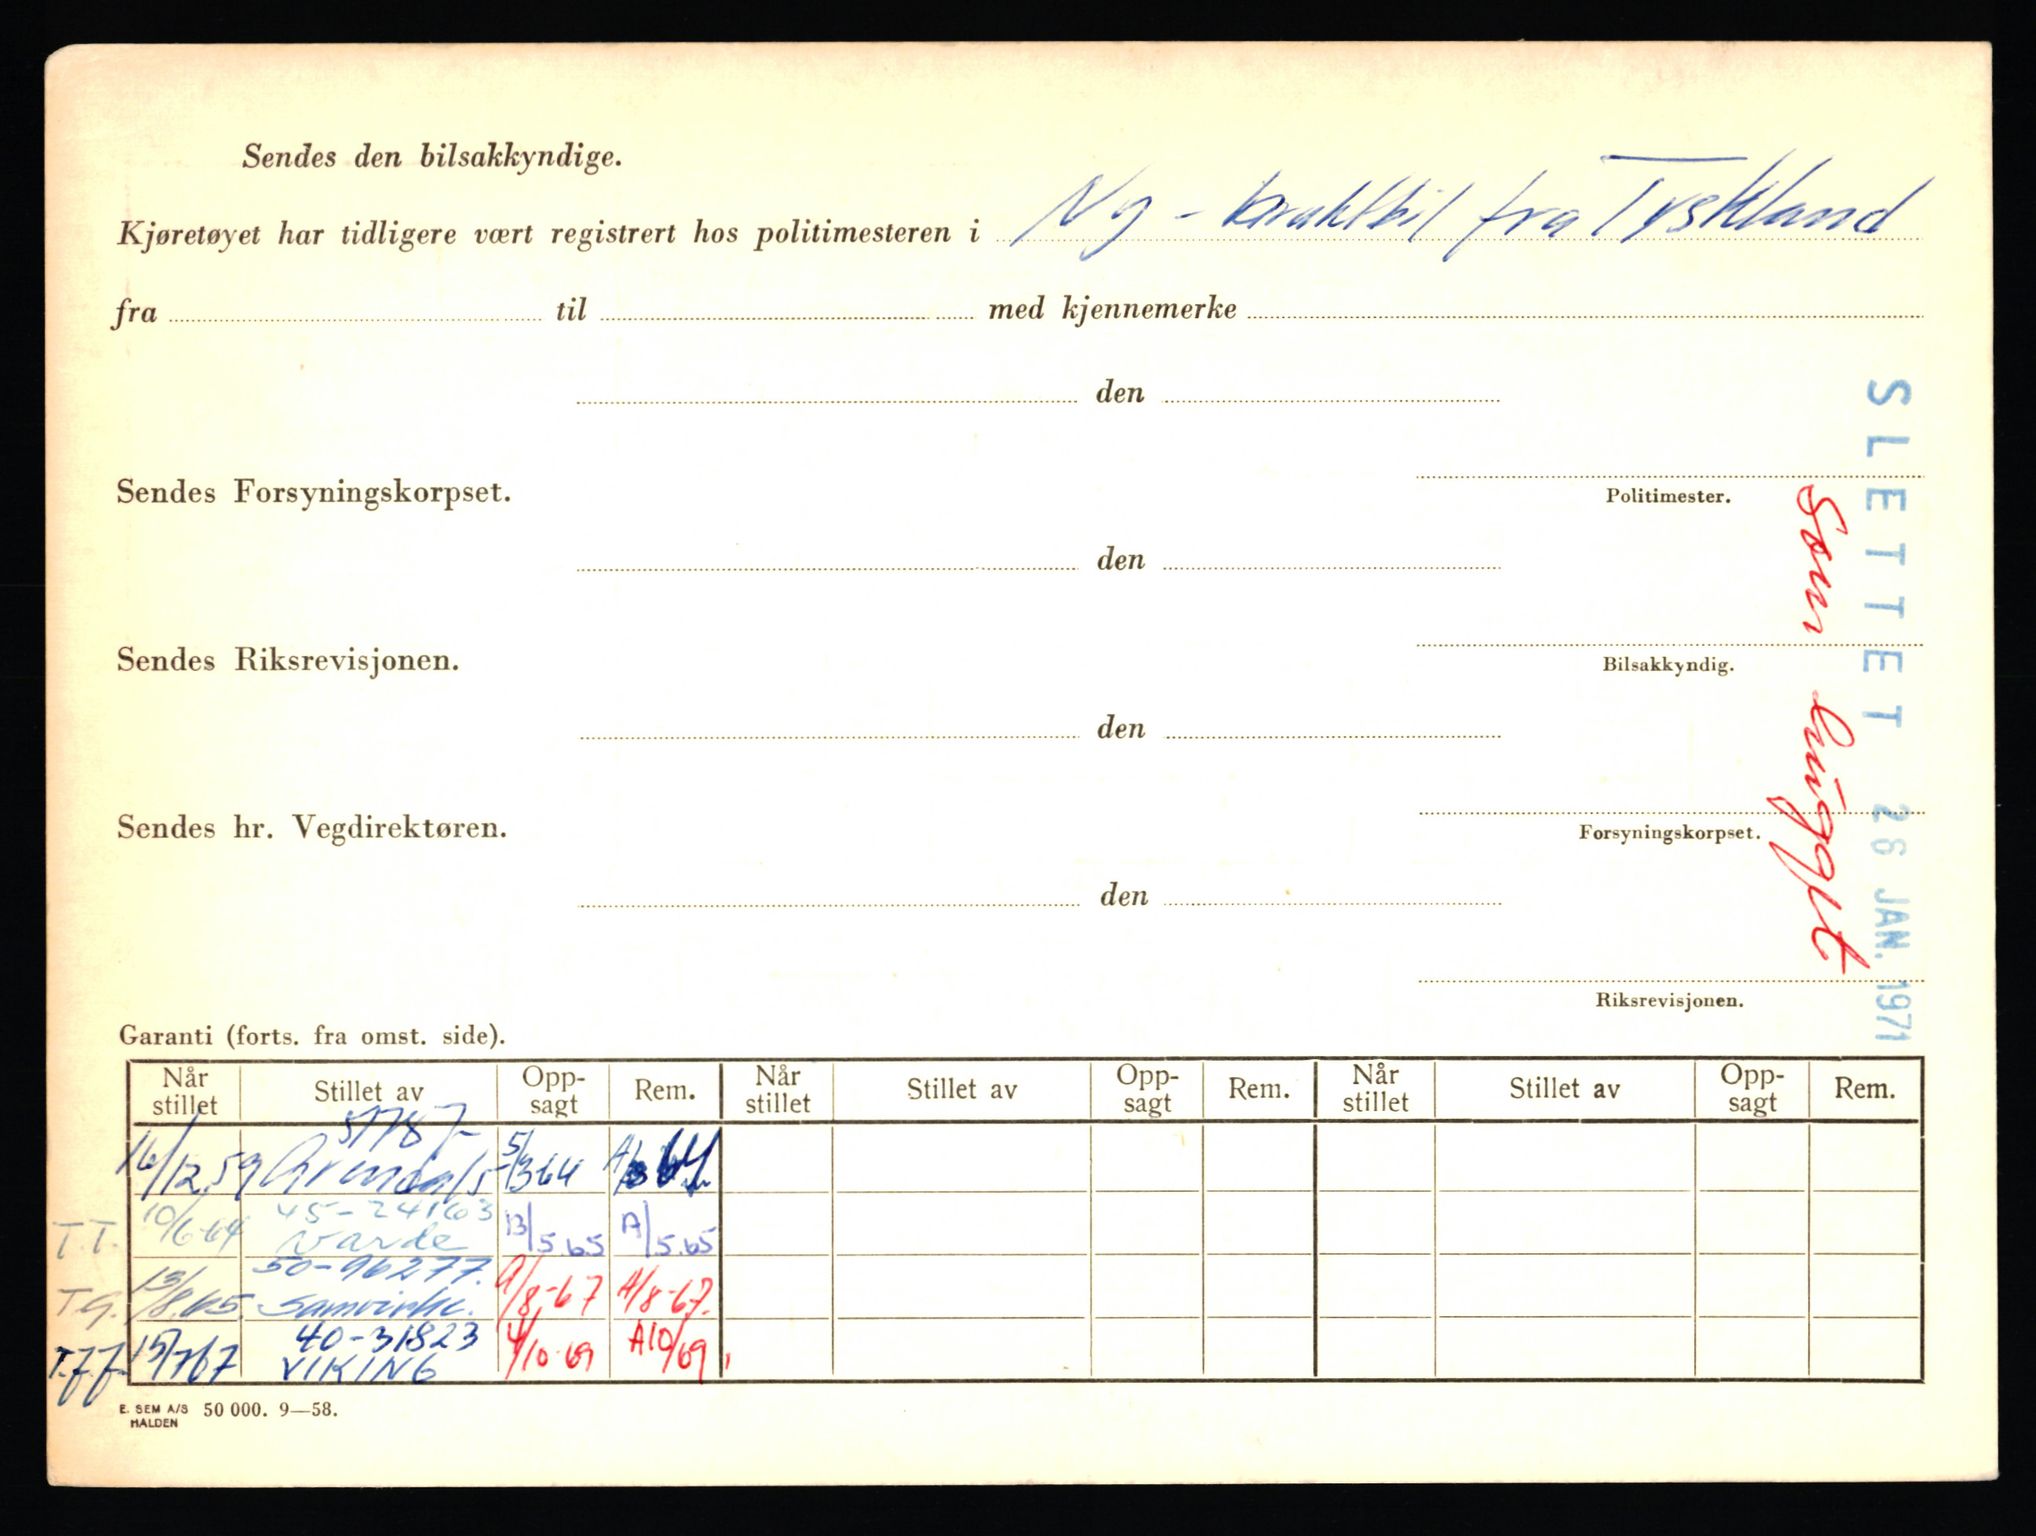 Sendes den bilsakkyndige.
Kjøretøyet har tidligere vært registrert hos politimesteren i Ny - bruktbil fra Tyskland
fra til med kjennemerke
den
Politimester.
Sendes Forsyningskorpset.
den
Bilsakkyndig.
Sendes Riksrevisjonen.
den
Forsyningskorpset.
Sendes hr. Vegdirektøren.
den
Riksrevisjonen.
SLETTET 26 JAN. 1971
Som hugget
Garanti (forts. fra omst. side).
Når stillet Stillet av Opp-sagt Rem. Når stillet Stillet av Opp-sagt Rem. Når stillet Stillet av Opp-sagt Rem.
51787
16/12.59 Arendals 5/3 64 A/3 64
45-24163
T.T. 10/6-64 Varde 13/5.65 A/5.65
50-96277.
T.G. 13/8.65. Samvirke. 9/8-67 A/8-67.
40-31823
T.f.f. 15/767 VIKING 4/10-69 A10/69
E. SEM A/S 50 000. 9—58.
HALDEN